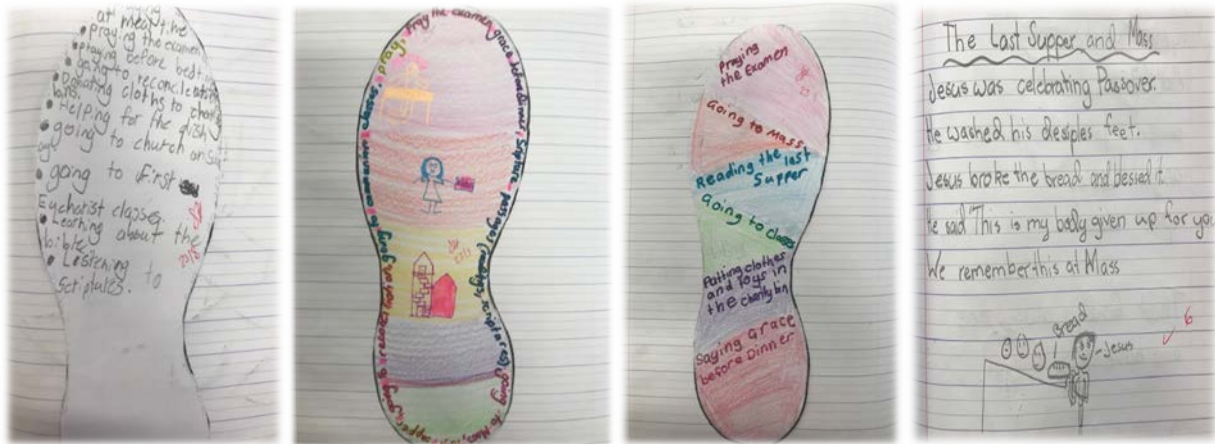 at meal time
• praying the examen
• praying before bedtime
• going to reconciliation
• Donating cloths to charity
bins.
• Helping for the
• going to church on
• going to first
Eucharist classes.
• Learning about the
bible.
• Listening to
scriptures.
2018
pray, Pray the examen, grace before dinner, Scripture passages (readings, scriptures) going to Mass,
going to reconciliation going to communion classes,
Praying
the Examen
Going to Mass
Reading the last
Supper
Going to Classes
Putting clothes
and toys in
the charity bin
Saying Grace
before Dinner
The Last Supper and Mass
Jesus was celebrating Passover.
He washed his desiples feet.
Jesus broke the bread and blessed it.
He said "This is my body given up for you
We remember this at Mass
Bread
Jesus
6